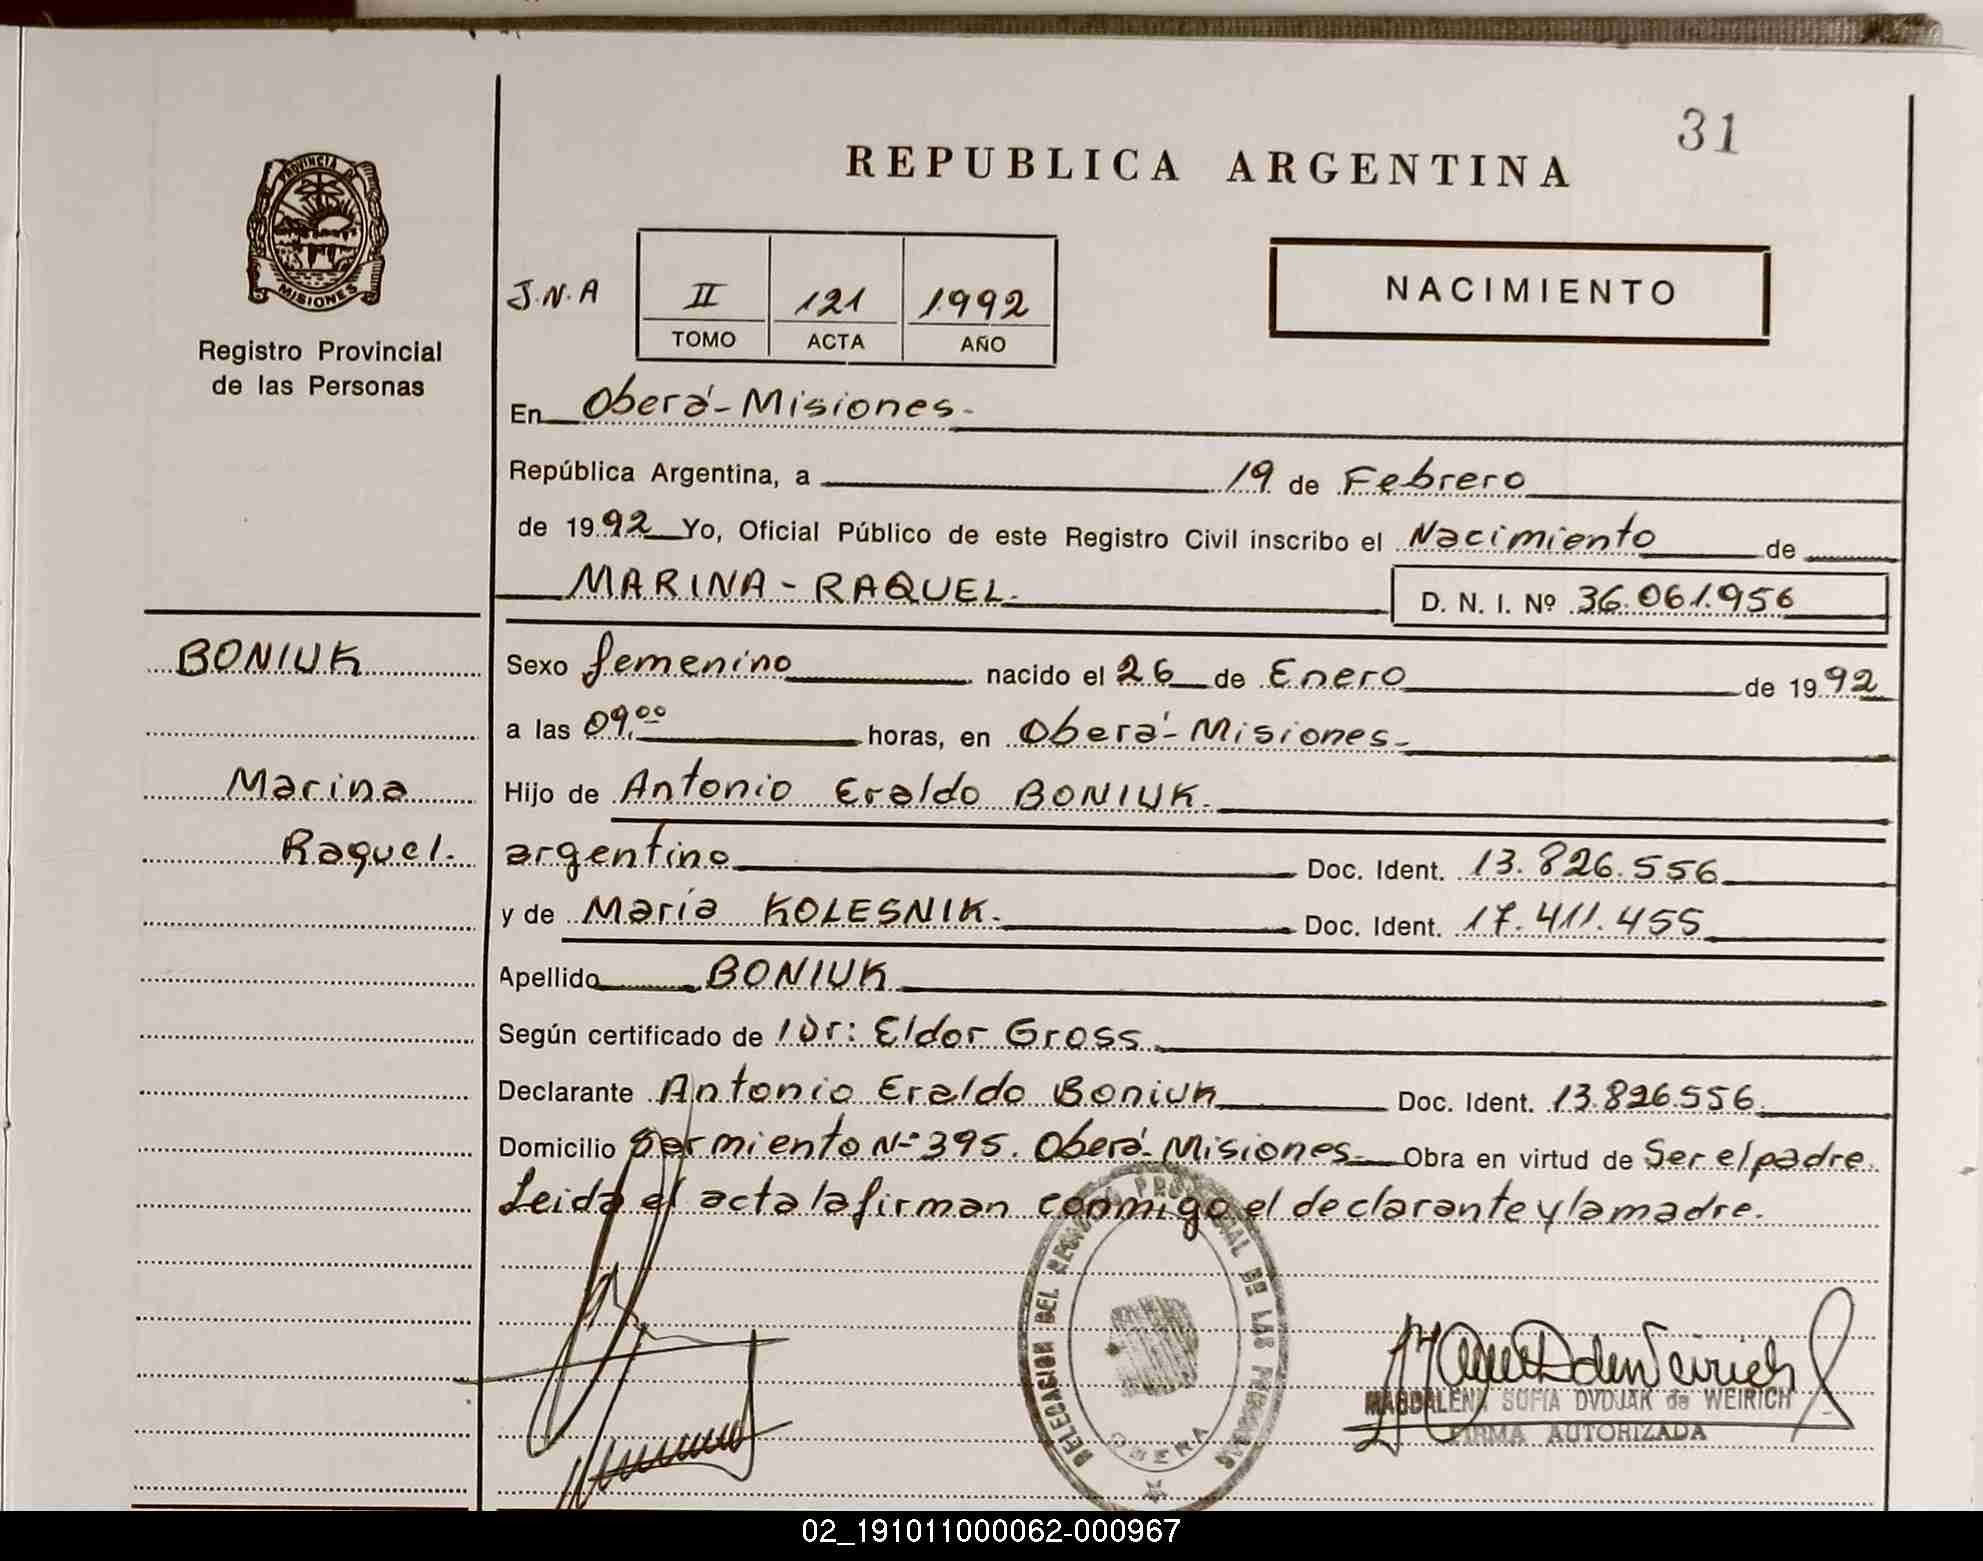 31
REPUBLICA ARGENTINA
PROVINCIA DE
MISIONES
Registro Provincial
de las Personas
J.N.A
II 121 1992
TOMO ACTA AÑO
NACIMIENTO
En Oberá-Misiones-
República Argentina, a 19 de Febrero
de 1992 Yo, Oficial Público de este Registro Civil inscribo el Nacimiento de
MARINA-RAQUEL. D. N. I. Nº 36.061.956
BONIUK
Sexo femenino nacido el 26 de Enero de 1992
a las 09.00 horas, en Oberá-Misiones-
Marina
Hijo de Antonio Eraldo BONIUK.
Raquel.
argentino Doc. Ident. 13.826.556
y de María KOLESNIK. Doc. Ident. 17.411.455
Apellido BONIUK
Según certificado de Dr: Eldor Gross
Declarante Antonio Eraldo Boniuk Doc. Ident. 13.826.556
Domicilio Sarmiento Nº 395. Oberá-Misiones- Obra en virtud de Ser el padre.
Leida el acta la firman conmigo el declarante y la madre.
DELEGACION DEL REGISTRO PROVINCIAL DE LAS PERSONAS
OBERA
MAGDALENA SOFIA DVDJAK de WEIRICH
FIRMA AUTORIZADA
02_191011000062-000967